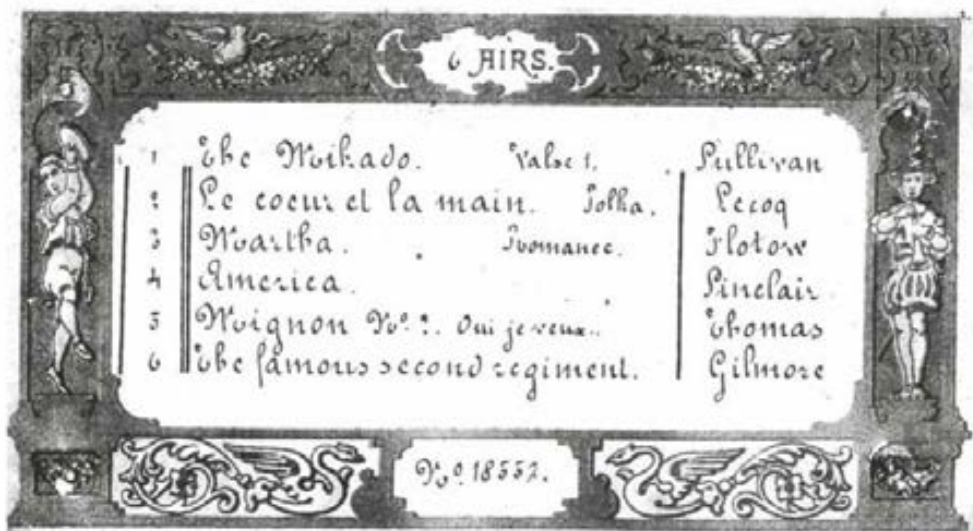 6 AIRS.
1 The Mikado. Valse 1. Sullivan
2 Le coeur et la main. Polka. Lecoq
3 Martha. Romance. Flotow
4 America. Sinclair
5 Mignon No. Oui je veux.. Thomas
6 The famous second regiment. Gilmore
No. 18552.